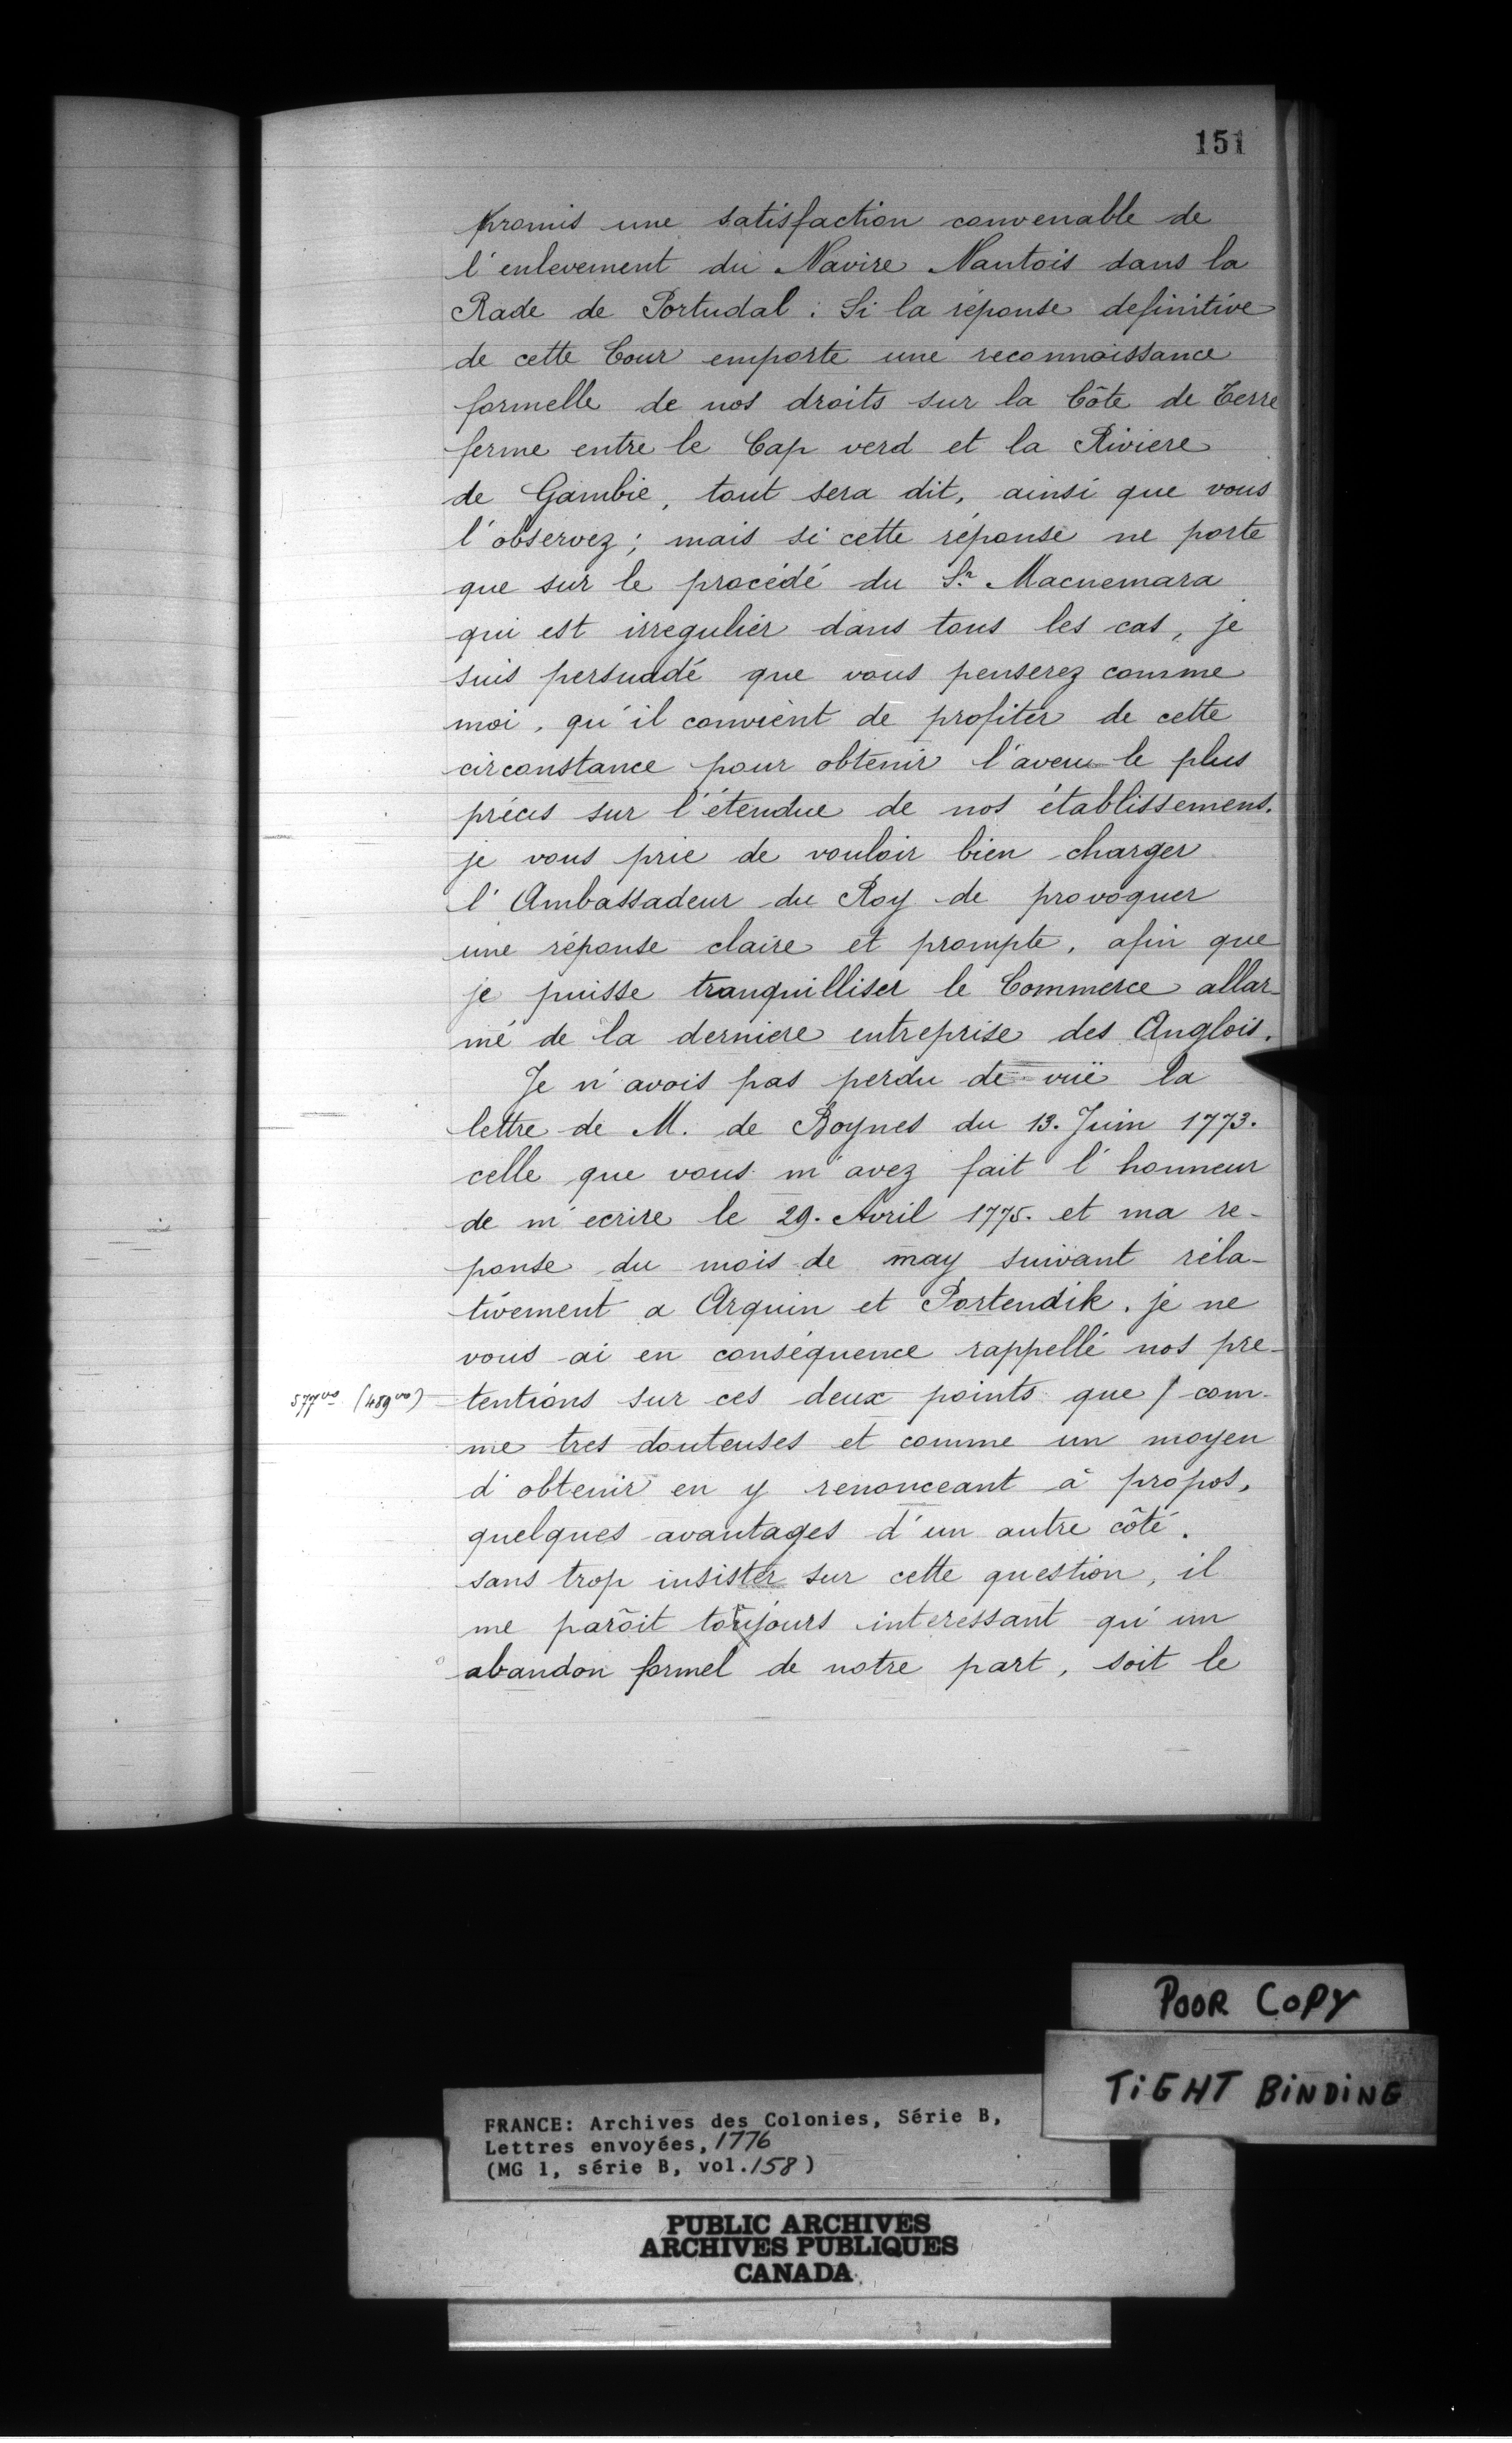 151
promis une satisfaction convenable de
l'enlevement du Navire Nantois dans la
Rade de Portudal. Si la réponse definitive
de cette Cour emporte une reconnoissance
formelle de nos droits sur la Côte de Terre
ferme entre le Cap verd et la Riviere
de Gambie, tout sera dit, ainsi que vous
l'observez; mais si cette réponse ne porte
que sur le procédé du Sr. Macnemara
qui est irregulier dans tous les cas, je
suis persuadé que vous penserez comme
moi, qu'il convient de profiter de cette
circonstance pour obtenir l'aveu le plus
précis sur l'étendue de nos établissemens.
je vous prie de vouloir bien charger
l'Ambassadeur du Roy de provoquer
une réponse claire et prompte, afin que
je puisse tranquilliser le Commerce allar-
mé de la derniere entreprise des Anglois.
Je n'avois pas perdu de vuë la
lettre de M. de Boynes du 13. Juin 1773.
celle que vous m'avez fait l'honneur
de m'ecrire le 29. Avril 1775. et ma re-
ponse du mois de may suivant réla-
tivement a Arguin et Portendik. je ne
vous ai en conséquence rappellé nos pre-
577vo (489vo) tentions sur ces deux points que / com-
me tres douteuses et comme un moyen
d'obtenir en y renonceant à propos,
quelques avantages d'un autre côté.
sans trop insister sur cette question, il
me parôit toûjours interessant qu'un
abandon formel de notre part, soit le
POOR COPY
TIGHT BINDING
FRANCE: Archives des Colonies, Série B,
Lettres envoyées, 1776
(MG 1, série B, vol. 158)
PUBLIC ARCHIVES
ARCHIVES PUBLIQUES
CANADA